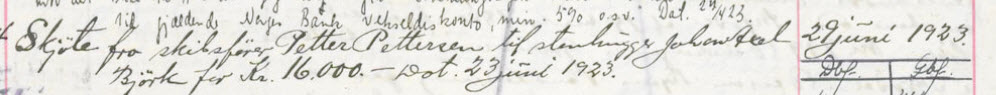 til gjældende Norges Bank vekseldiskonto, min. 5% o.s.v. Dat. 23/4 23.
Skjöte fra skibsförer Petter Pettersen til stenhugger Johan Axel 29 juni 1923.
Björk for Kr. 16.000.- Dat. 23 juni 1923.
Dbf. Gbf.